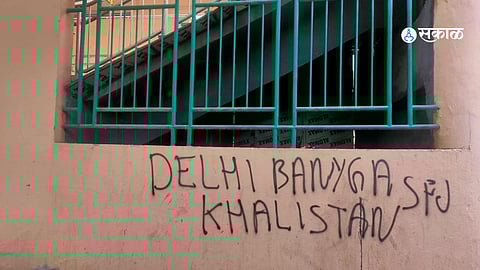 सकाळ
DELHI BANYGA SFJ
KHALISTAN